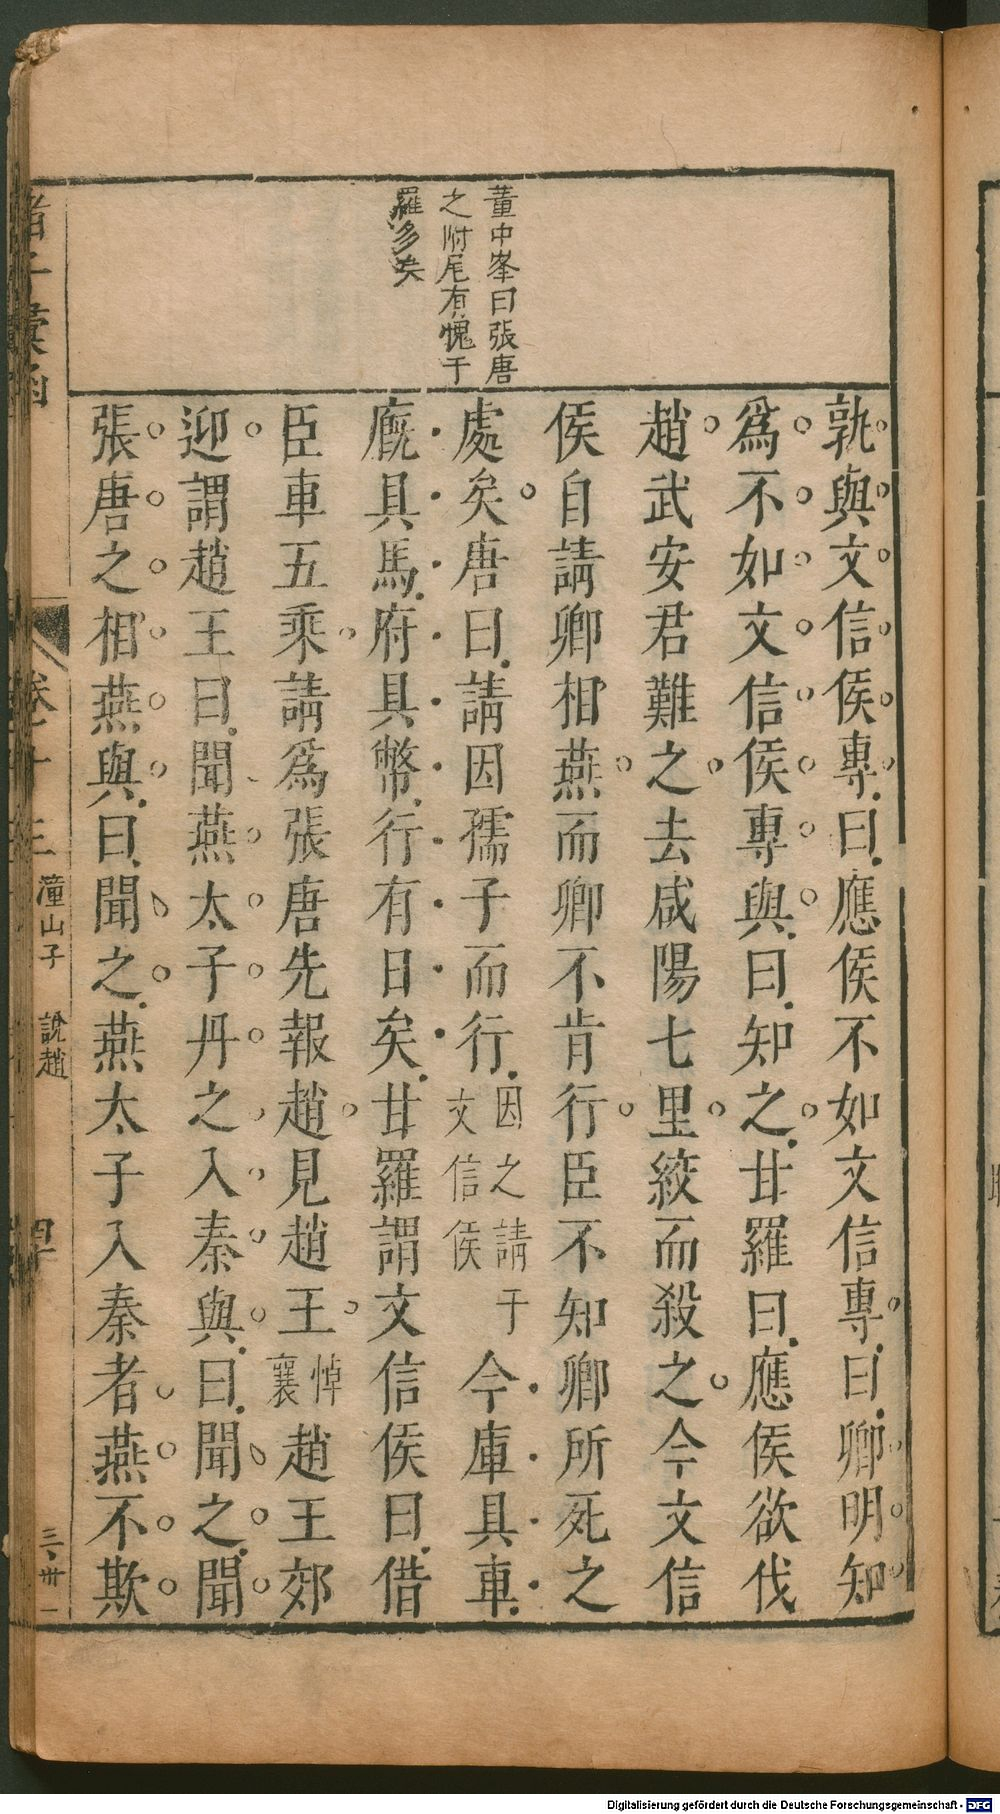 董中峯曰張唐
之附尾有愧于
羅多矣
孰與文信侯專曰應侯不如文信專曰卿明知
爲不如文信侯專與曰知之甘羅曰應侯欲伐
趙武安君難之去咸陽七里絞而殺之今文信
侯自請卿相燕而卿不肯行臣不知卿所死之
處矣唐曰請因孺子而行因之請于文信侯今庫具車
廐具馬府具幣行有日矣甘羅謂文信侯曰借
臣車五乘請爲張唐先報趙見趙王悼襄趙王郊
迎謂趙王曰聞燕太子丹之入秦與曰聞之聞
張唐之相燕與曰聞之燕太子入秦者燕不欺
諸子彙函
卷十三
潼山子 說趙
四十
三卅一
Digitalisierung gefördert durch die Deutsche Forschungsgemeinschaft - DFG